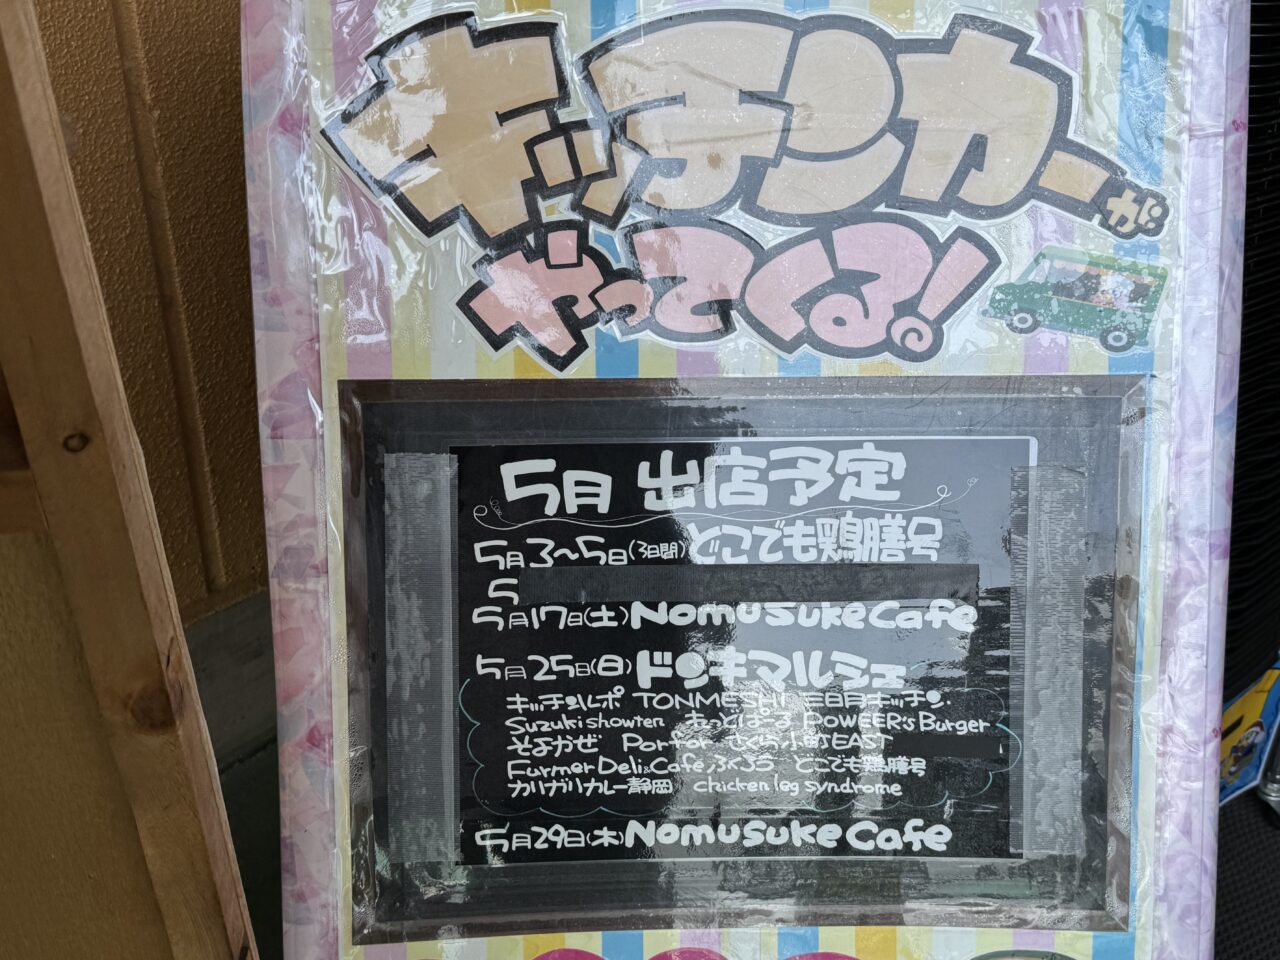 キッチンカーが
やってくる!
5月 出店予定
5月3~5日(3日間)どこでも鶏膳号
5
5月17日(土)Nomusuke Cafe
5月25日(日)ドンキマルシェ
キッチンルポ TONMESHI 三日月キッチン
Suzuki showten POWEER's Burger
そよかぜ Porfor さくら小町EAST
Furmer Deli&Cafe ふくろう どこでも鶏膳号
ガリガリカレー静岡 chicken leg syndrome
5月29日(木)Nomusuke Cafe